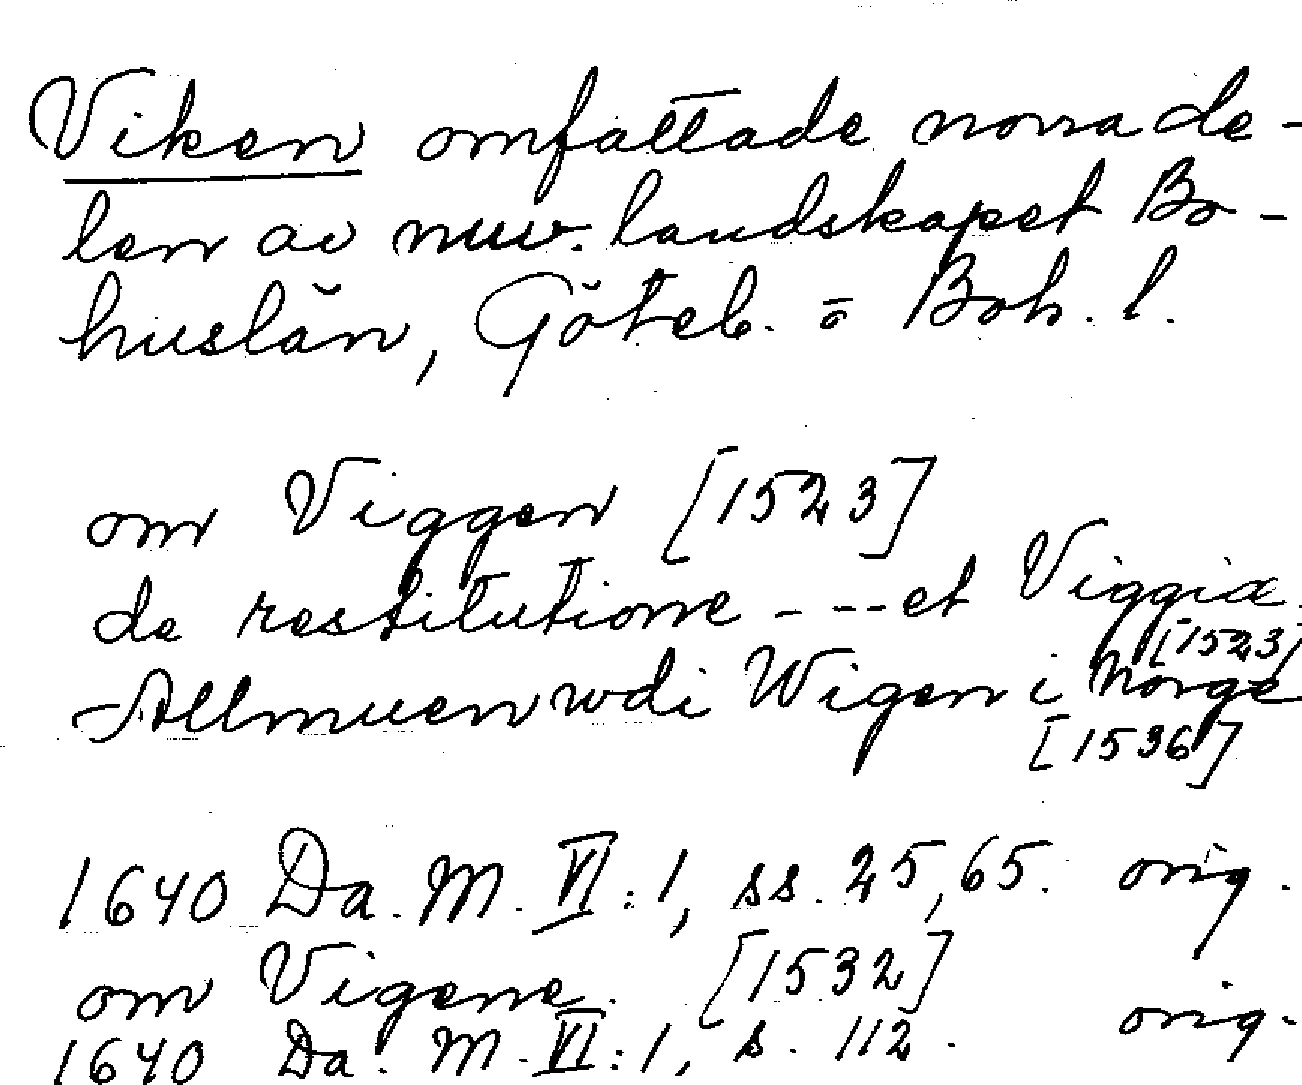 Viken omfattade norra de-
len av nuv. landskapet Bo-
huslän, Göteb. o Boh. l.
om Viggen [1523]
de restitutione - --- et Viggia
[1523]
Allmuen wdi Wigen i Norge
[1536]
1640 Da. M. VI:1, ss. 25, 65. orig.
om Vigene [1532]
1640 Da. M. VI:1, s. 112. orig.